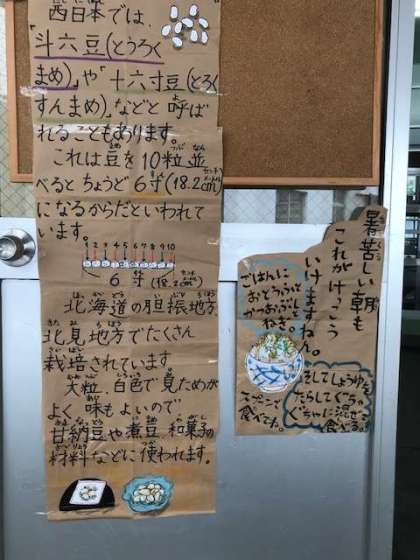 西日本では、
「斗六豆(とうろく
まめ)」や「十六寸豆(とろく
すんまめ)」などと呼ば
れることもあります。
これは豆を10粒並
べるとちょうど6寸(18.2cm)
になるからだといわれて
います。
1 2 3 4 5 6 7 8 9 10
6寸(18.2cm)
北海道の胆振地方、
北見地方でたくさん
栽培されています
大粒、白色で見ためが
よく、味もよいので
甘納豆や煮豆、和菓子の
材料などに使われます。
暑苦しい朝も
これがけっこう
いけますねん。
ごはんに
おとうふって
かつおぶしと
ねぎ。
そしてしょうゆを
たらしてぐちゃ
ぐちゃに混ぜて
食べる。
スプーンで
食べてた。